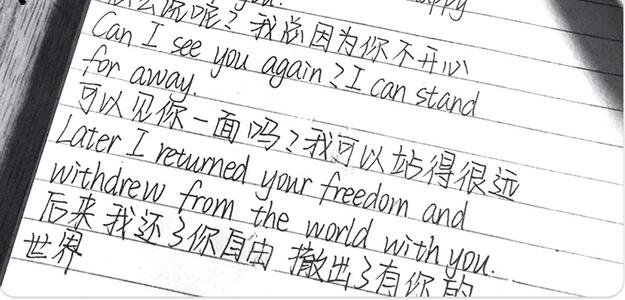 么办呢？我总因为你不开心
Can I see you again？I can stand
for away.
可以见你一面吗？我可以站得很远
Later I returned your freedom and
withdrew from the world with you.
后来我还了你自由 撤出了有你的
世界